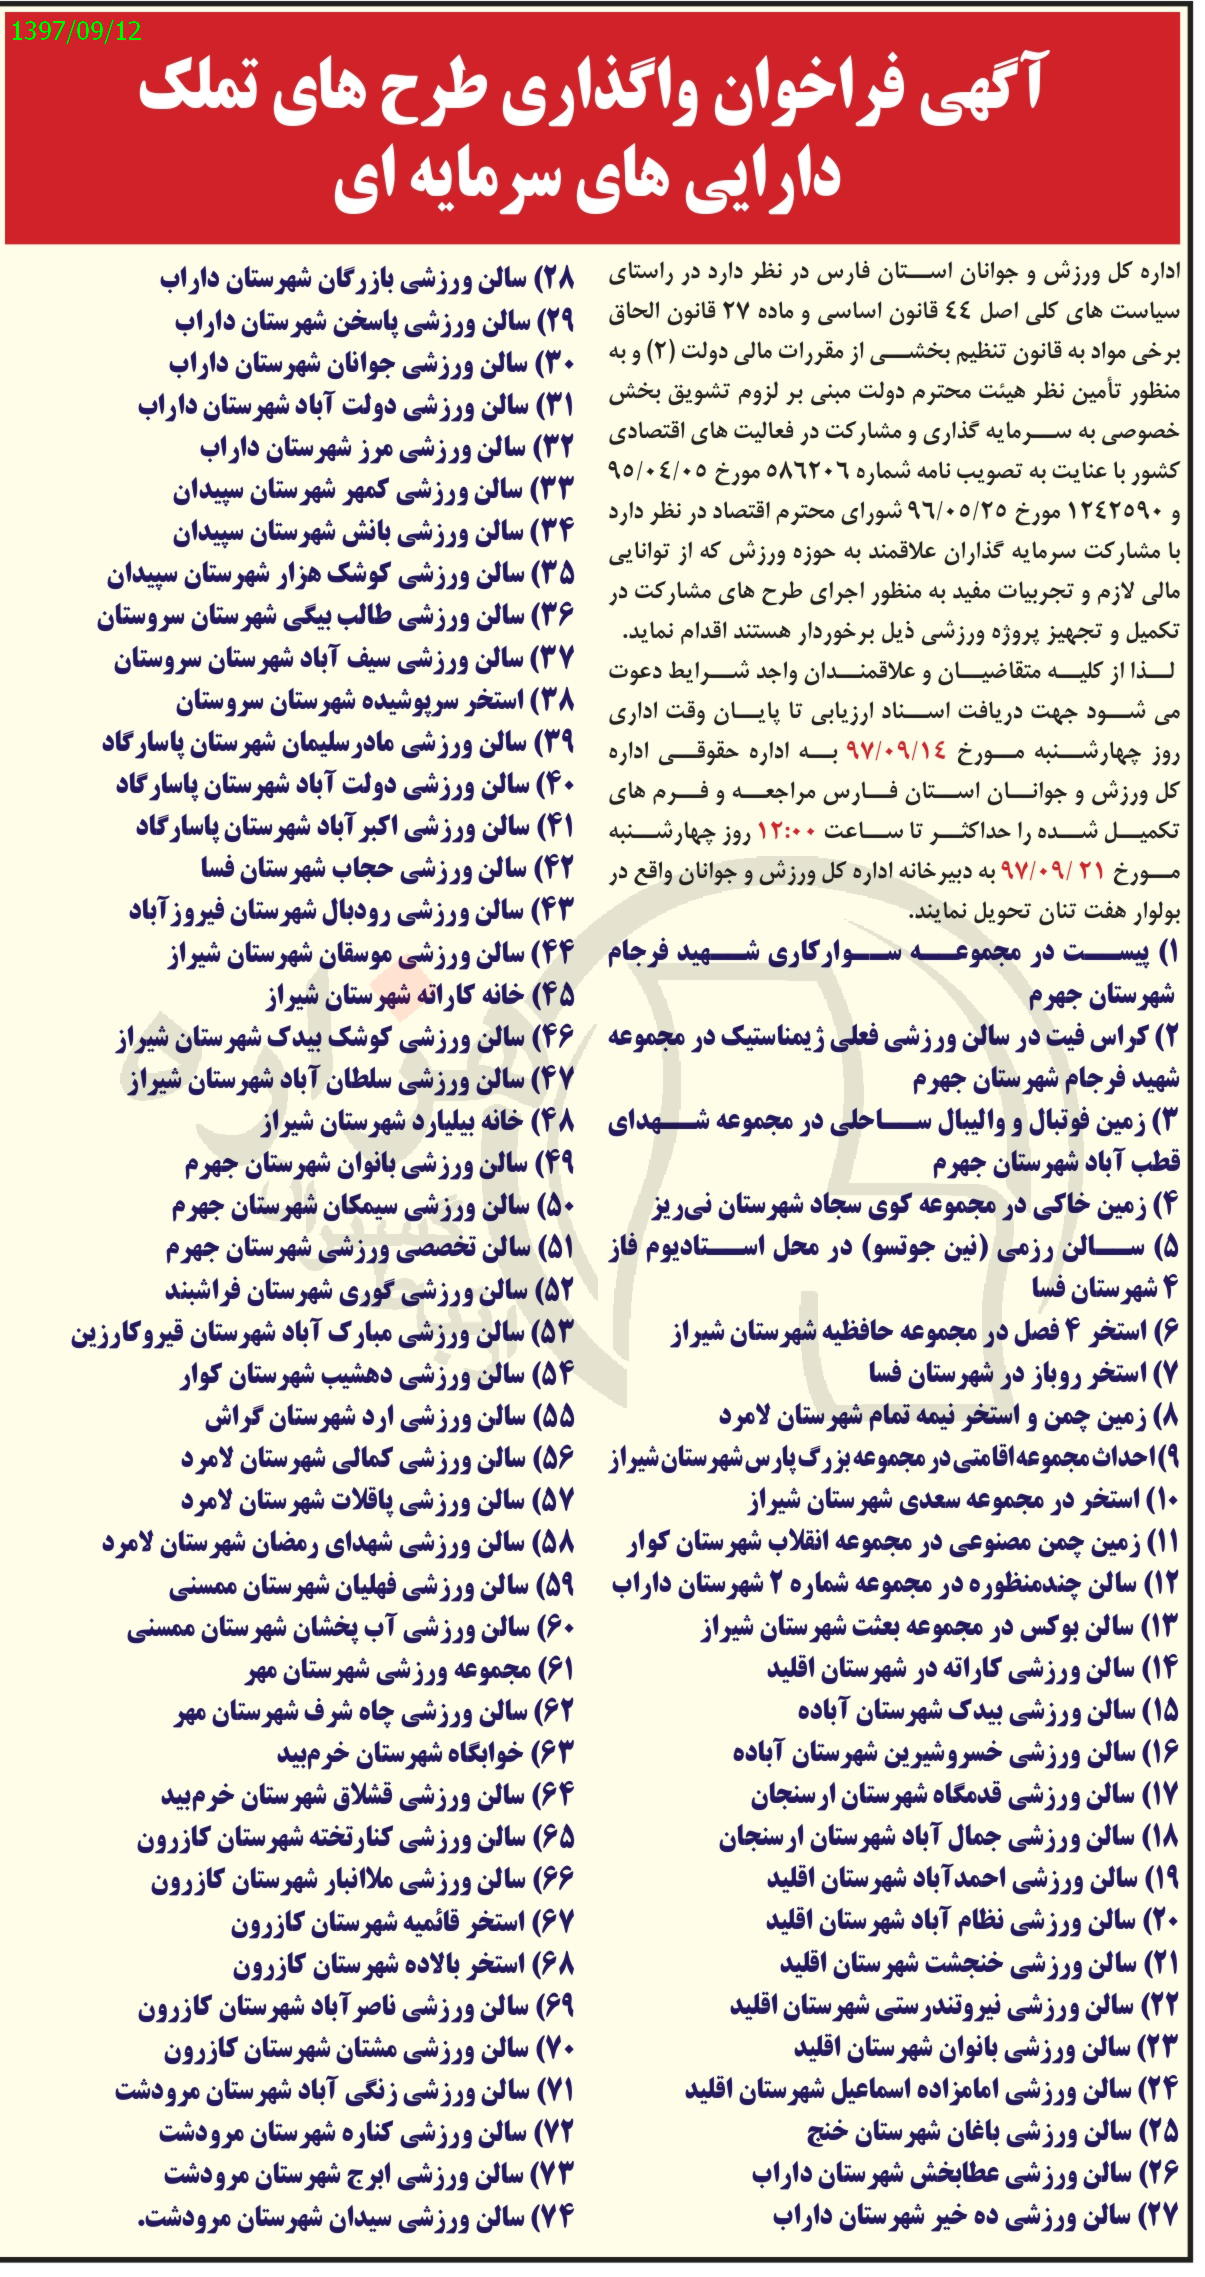 1397/09/12
آگهی فراخوان واگذاری طرح های تملک
دارایی های سرمایه ای
اداره کل ورزش و جوانان استان فارس در نظر دارد در راستای
سیاست های کلی اصل ٤٤ قانون اساسی و ماده ۲۷ قانون الحاق
برخی مواد به قانون تنظیم بخشی از مقررات مالی دولت (۲) و به
منظور تأمین نظر هیئت محترم دولت مبنی بر لزوم تشویق بخش
خصوصی به سرمایه گذاری و مشارکت در فعالیت های اقتصادی
کشور با عنایت به تصویب نامه شماره ٥٨٦٢٠٦ مورخ ٩٥/٠٤/٠٥
و ١٢٤٢٥٩٠ مورخ ٩٦/٠٥/٢٥ شورای محترم اقتصاد در نظر دارد
با مشارکت سرمایه گذاران علاقمند به حوزه ورزش که از توانایی
مالی لازم و تجربیات مفید به منظور اجرای طرح های مشارکت در
تکمیل و تجهیز پروژه ورزشی ذیل برخوردار هستند اقدام نماید.
لذا از کلیه متقاضیان و علاقمندان واجد شرایط دعوت
می شود جهت دریافت اسناد ارزیابی تا پایان وقت اداری
روز چهارشنبه مورخ ٩٧/٠٩/١٤ به اداره حقوقی اداره
کل ورزش و جوانان استان فارس مراجعه و فرم های
تکمیل شده را حداکثر تا ساعت ١٢:٠٠ روز چهارشنبه
مورخ ٢١ /٩٧/٠٩ به دبیرخانه اداره کل ورزش و جوانان واقع در
بولوار هفت تنان تحویل نمایند.
۱) پیست در مجموعه سوارکاری شهید فرجام
شهرستان جهرم
۲) کراس فیت در سالن ورزشی فعلی ژیمناستیک در مجموعه
شهید فرجام شهرستان جهرم
۳) زمین فوتبال و والیبال ساحلی در مجموعه شهدای
قطب آباد شهرستان جهرم
۴) زمین خاکی در مجموعه کوی سجاد شهرستان نی‌ریز
۵) سالن رزمی (نین جوتسو) در محل استادیوم فاز
۴ شهرستان فسا
۶) استخر ۴ فصل در مجموعه حافظیه شهرستان شیراز
۷) استخر روباز در شهرستان فسا
۸) زمین چمن و استخر نیمه تمام شهرستان لامرد
۹) احداث مجموعه اقامتی در مجموعه بزرگ پارس شهرستان شیراز
۱۰) استخر در مجموعه سعدی شهرستان شیراز
۱۱) زمین چمن مصنوعی در مجموعه انقلاب شهرستان کوار
۱۲) سالن چندمنظوره در مجموعه شماره ۲ شهرستان داراب
۱۳) سالن بوکس در مجموعه بعثت شهرستان شیراز
۱۴) سالن ورزشی کاراته در شهرستان اقلید
۱۵) سالن ورزشی بیدک شهرستان آباده
۱۶) سالن ورزشی خسروشیرین شهرستان آباده
۱۷) سالن ورزشی قدمگاه شهرستان ارسنجان
۱۸) سالن ورزشی جمال آباد شهرستان ارسنجان
۱۹) سالن ورزشی احمدآباد شهرستان اقلید
۲۰) سالن ورزشی نظام آباد شهرستان اقلید
۲۱) سالن ورزشی خنجشت شهرستان اقلید
۲۲) سالن ورزشی نیروتندرستی شهرستان اقلید
۲۳) سالن ورزشی بانوان شهرستان اقلید
۲۴) سالن ورزشی امامزاده اسماعیل شهرستان اقلید
۲۵) سالن ورزشی باغان شهرستان خنج
۲۶) سالن ورزشی عطابخش شهرستان داراب
۲۷) سالن ورزشی ده خیر شهرستان داراب
۲۸) سالن ورزشی بازرگان شهرستان داراب
۲۹) سالن ورزشی پاسخن شهرستان داراب
۳۰) سالن ورزشی جوانان شهرستان داراب
۳۱) سالن ورزشی دولت آباد شهرستان داراب
۳۲) سالن ورزشی مرز شهرستان داراب
۳۳) سالن ورزشی کمهر شهرستان سپیدان
۳۴) سالن ورزشی بانش شهرستان سپیدان
۳۵) سالن ورزشی کوشک هزار شهرستان سپیدان
۳۶) سالن ورزشی طالب بیگی شهرستان سروستان
۳۷) سالن ورزشی سیف آباد شهرستان سروستان
۳۸) استخر سرپوشیده شهرستان سروستان
۳۹) سالن ورزشی مادرسلیمان شهرستان پاسارگاد
۴۰) سالن ورزشی دولت آباد شهرستان پاسارگاد
۴۱) سالن ورزشی اکبرآباد شهرستان پاسارگاد
۴۲) سالن ورزشی حجاب شهرستان فسا
۴۳) سالن ورزشی رودبال شهرستان فیروزآباد
۴۴) سالن ورزشی موسقان شهرستان شیراز
۴۵) خانه کاراته شهرستان شیراز
۴۶) سالن ورزشی کوشک بیدک شهرستان شیراز
۴۷) سالن ورزشی سلطان آباد شهرستان شیراز
۴۸) خانه بیلیارد شهرستان شیراز
۴۹) سالن ورزشی بانوان شهرستان جهرم
۵۰) سالن ورزشی سیمکان شهرستان جهرم
۵۱) سالن تخصصی ورزشی شهرستان جهرم
۵۲) سالن ورزشی گوری شهرستان فراشبند
۵۳) سالن ورزشی مبارک آباد شهرستان قیروکارزین
۵۴) سالن ورزشی دهشیب شهرستان کوار
۵۵) سالن ورزشی ارد شهرستان گراش
۵۶) سالن ورزشی کمالی شهرستان لامرد
۵۷) سالن ورزشی پاقلات شهرستان لامرد
۵۸) سالن ورزشی شهدای رمضان شهرستان لامرد
۵۹) سالن ورزشی فهلیان شهرستان ممسنی
۶۰) سالن ورزشی آب پخشان شهرستان ممسنی
۶۱) مجموعه ورزشی شهرستان مهر
۶۲) سالن ورزشی چاه شرف شهرستان مهر
۶۳) خوابگاه شهرستان خرم‌بید
۶۴) سالن ورزشی قشلاق شهرستان خرم‌بید
۶۵) سالن ورزشی کنارتخته شهرستان کازرون
۶۶) سالن ورزشی ملاانبار شهرستان کازرون
۶۷) استخر قائمیه شهرستان کازرون
۶۸) استخر بالاده شهرستان کازرون
۶۹) سالن ورزشی ناصرآباد شهرستان کازرون
۷۰) سالن ورزشی مشتان شهرستان کازرون
۷۱) سالن ورزشی زنگی آباد شهرستان مرودشت
۷۲) سالن ورزشی کناره شهرستان مرودشت
۷۳) سالن ورزشی ابرج شهرستان مرودشت
۷۴) سالن ورزشی سیدان شهرستان مرودشت.
هزاره